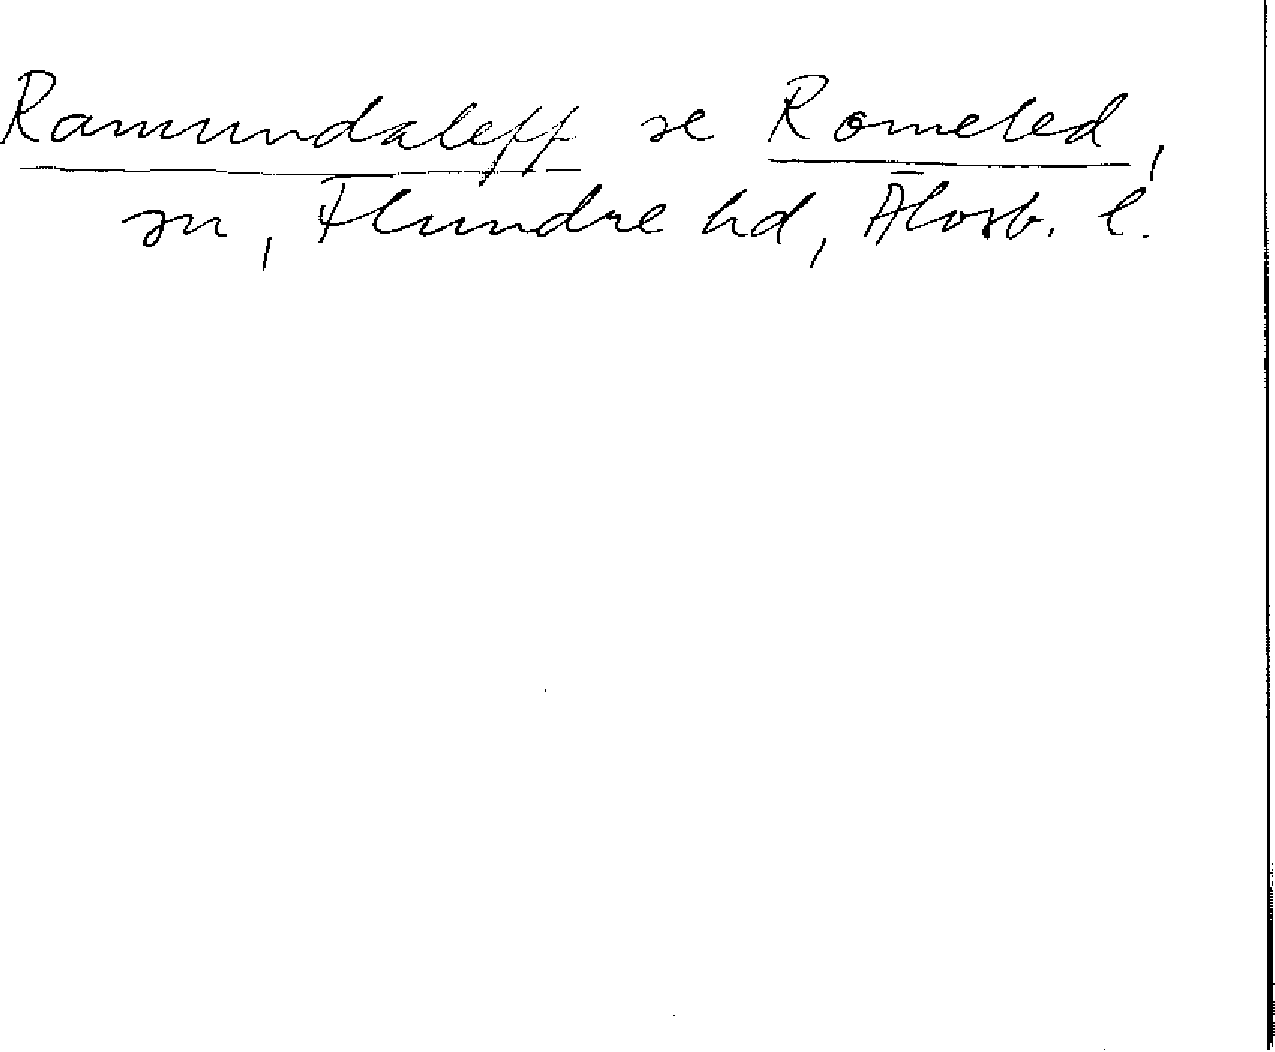 Ramundaleff se Romeled,
sn, Flundre hd, Älvsb. l.